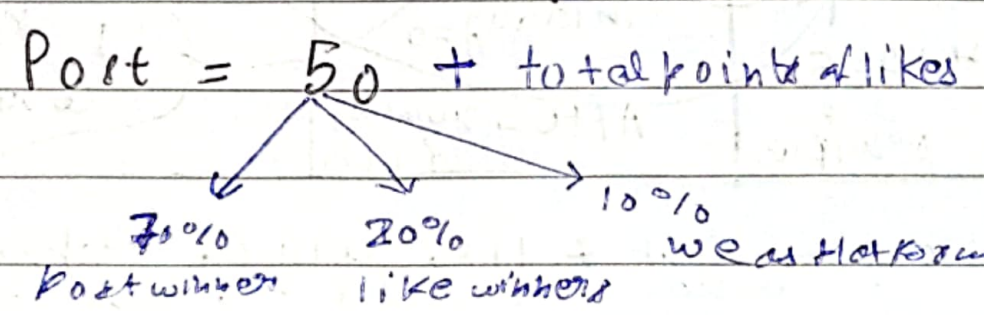 Post = 50 + total points of likes
70% 20% 10%
Post winner like winners we as Platform